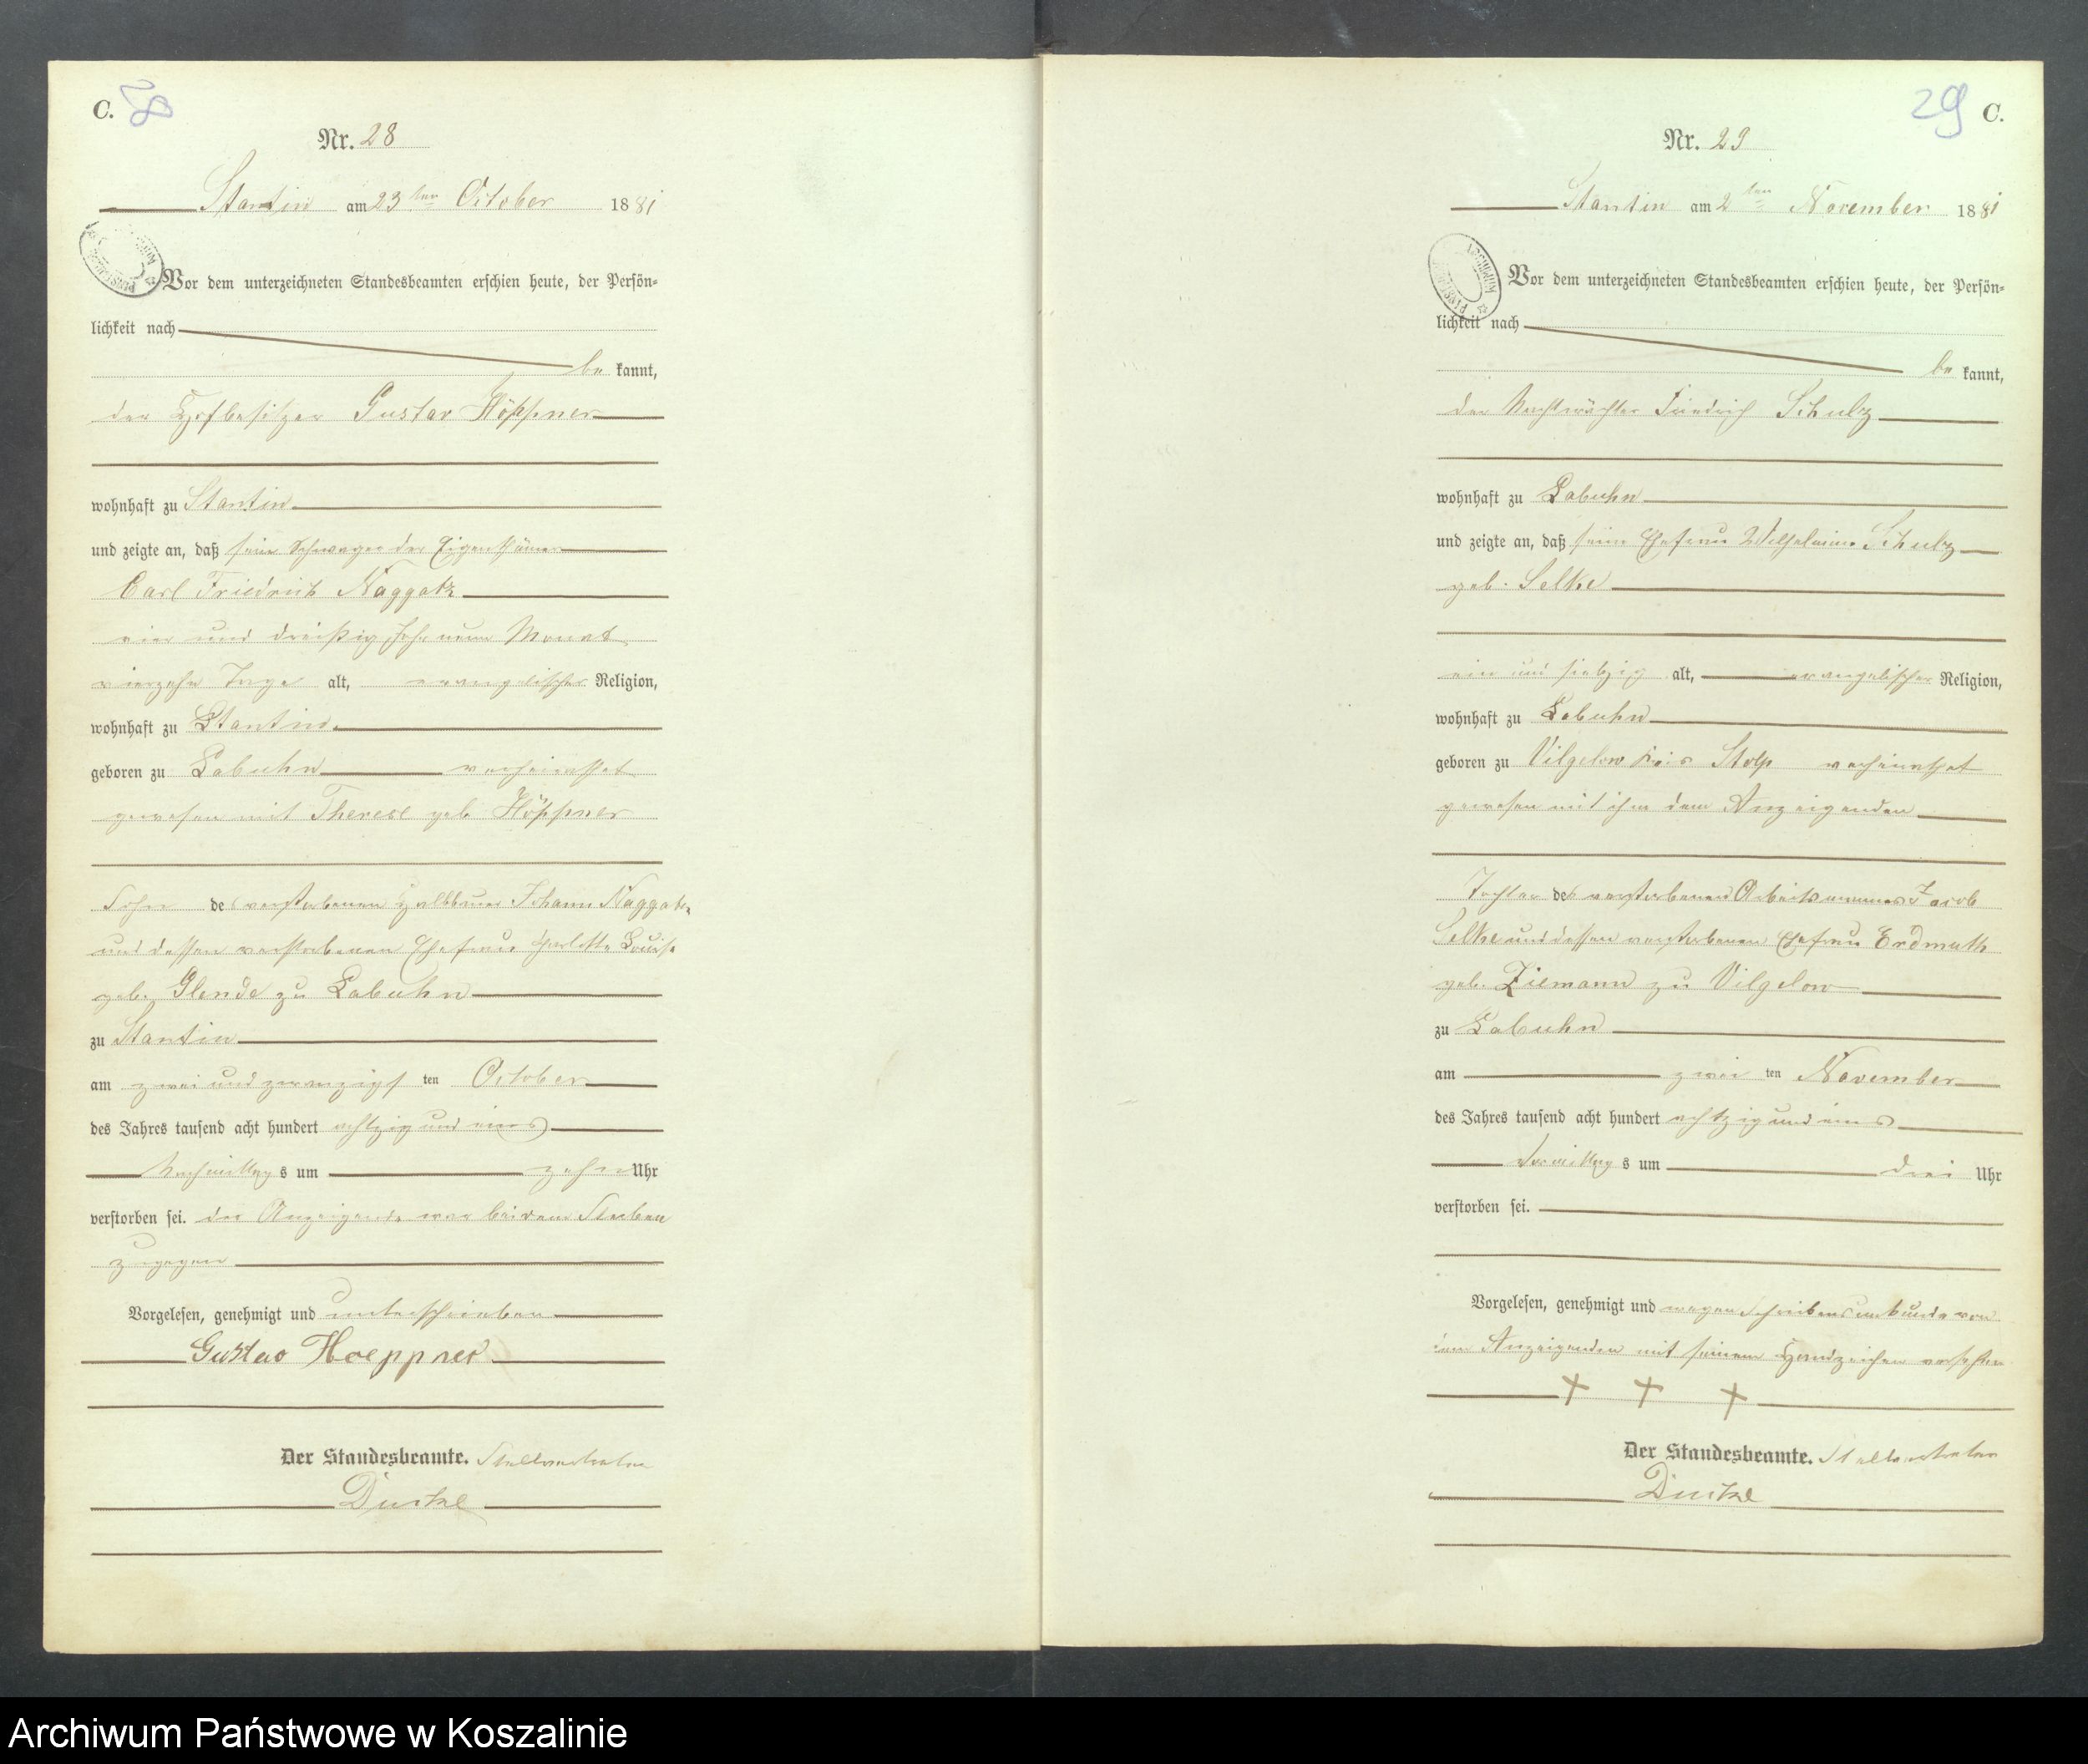 C. 28
Nr. 28
Stantin am 23ten October 1881
Vor dem unterzeichneten Standesbeamten erschien heute, der Persön-
lichkeit nach
be kannt,
der Hofbesitzer Gustav Höppner
wohnhaft zu Stantin
und zeigte an, daß sein Schwager der Eigenthümer
Carl Friedrich Naggatz
ein und dreißig Jahr neun Monat
vierzehn Tage alt, evangelischer Religion,
wohnhaft zu Stantin
geboren zu Labuhn verheirathet
gewesen mit Therese geb Höppner
Sohn des verstorbenen Halbbauer Johann Naggatz
und dessen verstorbenen Ehefrau Charlotte Louise
geb. Glende zu Labuhn
zu Stantin
am zwei und zwanzigs ten October
des Jahres tausend acht hundert achtzig und eins
Nachmittag s um zehn Uhr
verstorben sei. der Anzeigende war bei dem Sterben
zugegen
Vorgelesen, genehmigt und unterschrieben
Gustav Hoeppner
Der Standesbeamte. Stellvertreter
29 C.
Nr. 29
Stantin am 2ten November 1881
Vor dem unterzeichneten Standesbeamten erschien heute, der Persön-
lichkeit nach
be kannt,
der Nachtwächter Friedrich Schulz
wohnhaft zu Labuhn
und zeigte an, daß seine Ehefrau Wilhelmine Schulz
geb. Selke
ein und siebzig alt, evangelischer Religion,
wohnhaft zu Labuhn
geboren zu Vilgelow Kreis Stolp verheirathet
gewesen mit ihm dem Anzeigenden
Tochter des verstorbenen Arbeitsmannes Jacob
Selke und dessen verstorbenen Ehefrau Erdmuth
geb. Ziemann zu Vilgelow
zu Labuhn
am zwei ten November
des Jahres tausend acht hundert achtzig und eins
Vormittag s um drei Uhr
verstorben sei.
Vorgelesen, genehmigt und wegen Schreibensunkunde von
dem Anzeigenden mit seinem Handzeichen versehen
+ + +
Der Standesbeamte. Stellvertreter
Archiwum Państwowe w Koszalinie